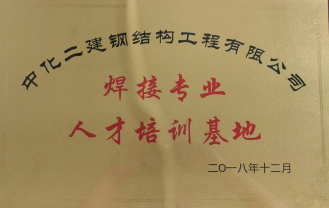 中化二建钢结构工程有限公司
焊接专业
人才培训基地
二〇一八年十二月